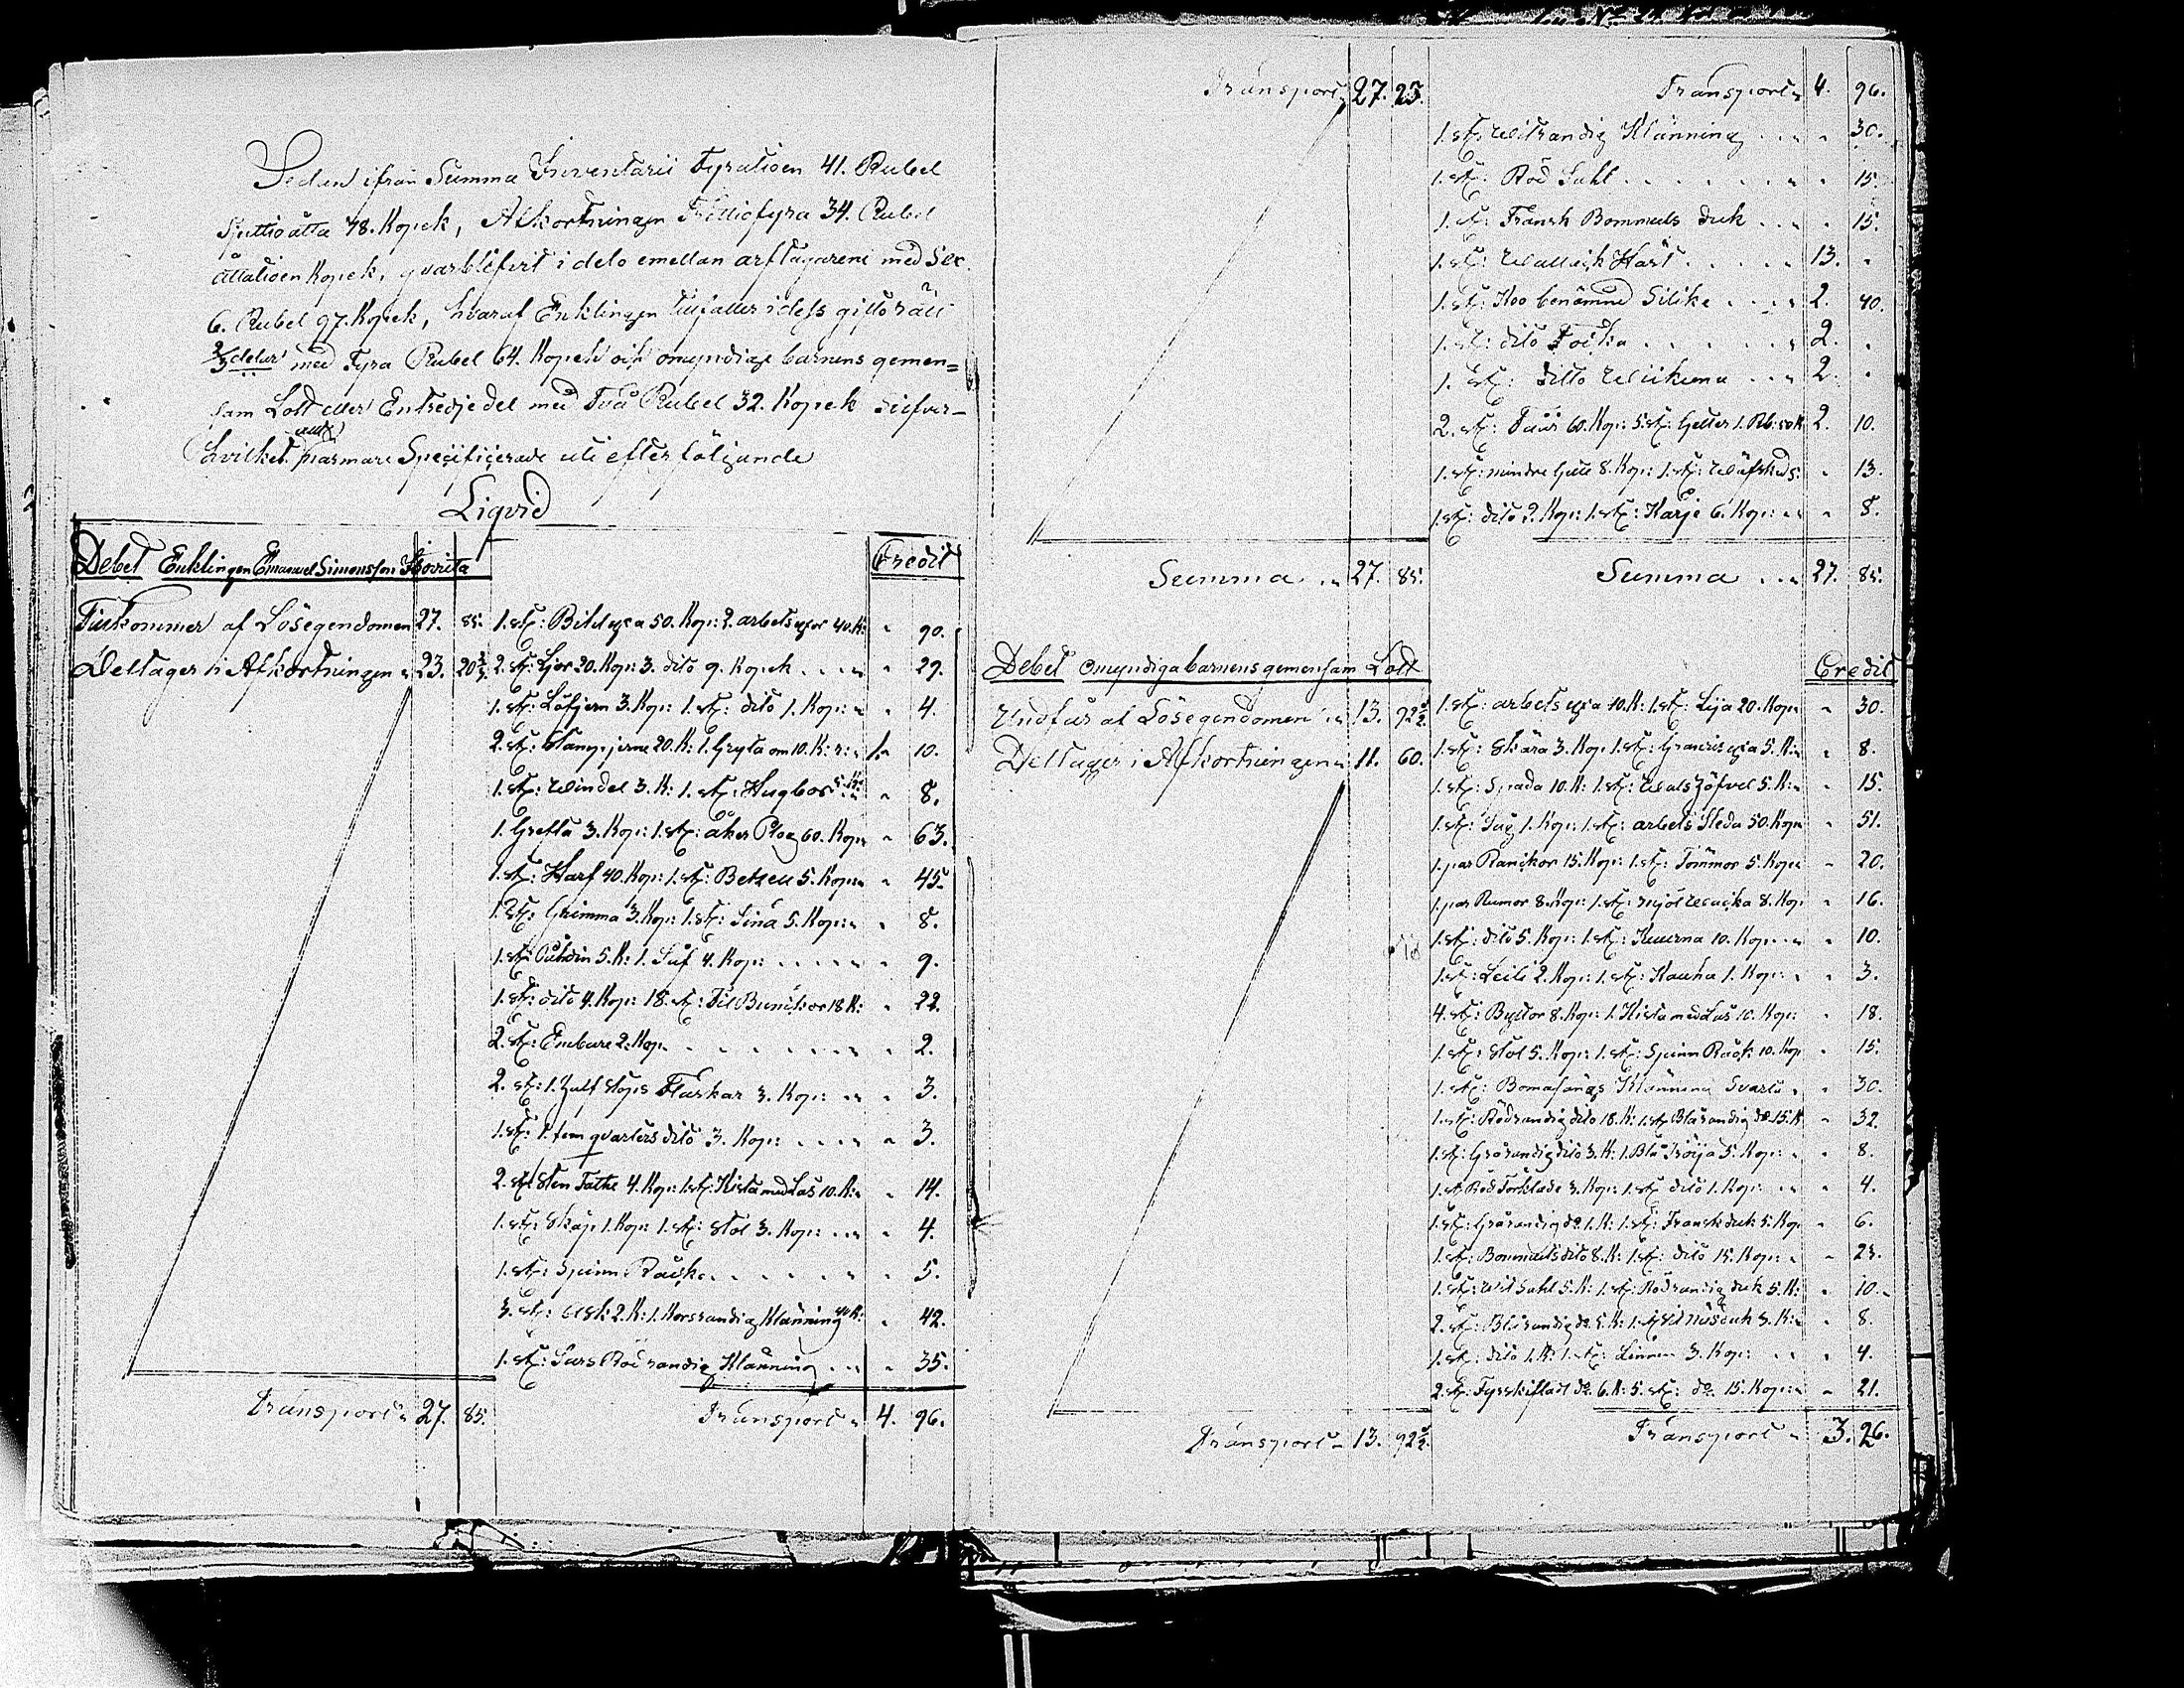 Sedan ifrån Summa Inventarii Fyratioen 41. Rubel
Sjuttioåtta 78. Kopek, Afkortningen Trettiofyra 34. Rubel
åttatioen Kopek, qvarblifvit i delo emellan arftagarene med Sex
6. Rubel 97. Kopek, hvaraf Enklingen tillfaller i dess giftorätt
2/3 delar med Fyra Rubel 64. Kopek och omyndige barnens gemen=
sam Lott eller Entredjedel med Två Rubel 32. Kopek Silfver-
hvilket allt närmare Specificerade uti efterföljande
Liqvid
Debet Enklingen Emanuel Simonsson Credit
Tillkommer af Lösegendomen 27. 85.
Deltager i Afkortningen 23. 20 2/3
1. st: Bilyxa 50. Kop: 2. arbetsyxor 40. K: " 90.
2. st: Ljor 20. Kop: 3. dito 9. Kopek " 29.
1. st: Löfjern 3. Kop: 1. st: dito 1. Kop: " 4.
2. st: Stångjerne 20. K: 1. Gryta om 10. K: 1. 10.
1. st: Windel 3. K: 1. st: Hugbor 5. K: " 8.
1. Grefta 3. Kop: 1. st: åker Plog 60. Kop: " 63.
1. st: Harf 40. Kop: 1. st: Betzell 5. Kop: " 45.
1. st: Grimma 3. Kop: 1. st: Lina 5. Kop: " 8.
1. st: 5. K: 1. 4. Kop: " 9.
1. st: dito 4. Kop: 18. st: Bunckor 18 K: " 22.
2. st: Embare 2. Kop. " 2.
2. st: 1. half stops Flaskor 3. Kop: " 3.
1. st: 1. fem qvarters dito 3. Kop: " 3.
2. st: Sten Fathe 4. Kop: 1. st: Kista med Lås 10. K: " 14.
1. st: Skåp 1. Kop: 1. st: Stol 3. Kop: " 4.
1. st: Spinn Råck " 5.
3. st: Ask 2. K: 1. Korsrandig Klänning 40 K: " 42.
1. st: Sars Rödrandig Klänning " 35.
Transport 27. 85. Transport 4. 96.
Transport 27. 25. Transport 4. 96.
1. st: Witrandig Klänning " 30.
1. st: Röd Sahl " 15.
1. st: Fransk Bommuls duk " 15.
1. st: Wallack Häst 13. "
1. st: Koo benämnd Silike 2. 40.
1. st: dito 2. "
1. st: ditto Wiikuna 2. "
2. st: Fåår 60. Kop: 5. st: Getter 1. Rb: 50 K 2. 10.
1. st: mindre Gete 8. Kop: 1. st: Wäfsked 5. " 13.
1. st: dito 2. Kop: 1. st: Karje 6. Kop: " 8.
Summa 27. 85. Summa 27. 85.
Debet omyndiga barnens gemensam Lott Credit
Undfår af Lösegendomen 13. 92 1/2
Deltager i Afkortningen 11. 60.
1. st: arbets yxa 10. K: 1. st: Lija 20. Kop: " 30.
1. st: Skära 3. Kop: 1. st: yxa 5. K: " 8.
1. st: Spada 10. K: 1. st: 5. K: " 15.
1. st: Såg 1. Kop: 1. st: arbets Släda 50. Kop: " 51.
1. par Ranckor 15. Kop: 1. st: Tömmor 5. Kop: " 20.
1. par Rumor 8. Kop: 1. st: mjöl 8. Kop. " 16.
1. st: dito 5. Kop: 1. st: 10. Kop: " 10.
1. st: 2. Kop: 1. st: Kauha 1. Kop: " 3.
4. st: Byttor 8. Kop: 1. Kista med Lås 10. Kop: " 18.
1. st: Stol 5. Kop: 1. st: Spinn Råck 10. Kop " 15.
1. st: Klänning Svart " 30.
1. st: Rödrandig dito 18. K: 1. st: Blårandig do. 15. K " 32.
1. st: Grårandig dito 3. K: 1. Blå Tröija 5. Kop: " 8.
1. st: Röd Förkläde 3. Kop: 1. st: dito 1. Kop: " 4.
1. st: Grårandig do. 1. K: 1. st: Fransk duk 5. Kop. " 6.
1. st: Bommuls dito 8. K: 1. st: dito 15. Kop: " 23.
1. st: Wit Sahl 5. K: 1. st: Rödrandig duk 5. K: " 10.
2. st: Blårandig do. 5. K: 1. st: Näsduk 3. K: " 8.
1. st: dito 1. K: 1. st: Linnen 3. Kop: " 4.
2. st: do. 6. K: 5. st: do. 15. Kop: " 21.
Transport 13. 92 1/2. Transport 3. 26.